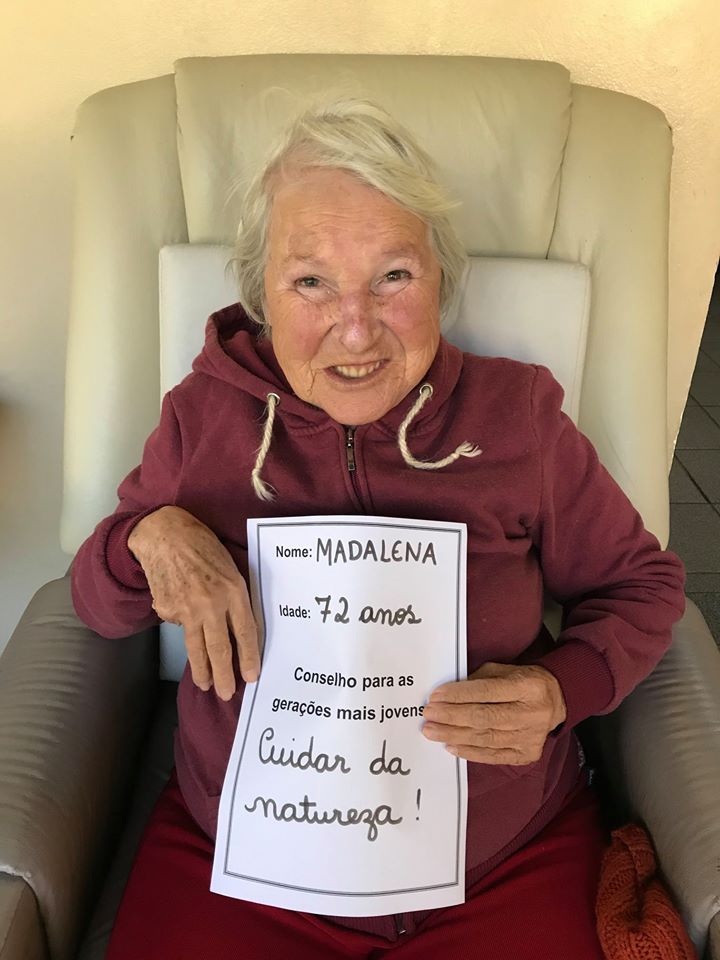 Nome: MADALENA
Idade: 72 anos
Conselho para as
gerações mais jovens
Cuidar da
natureza!